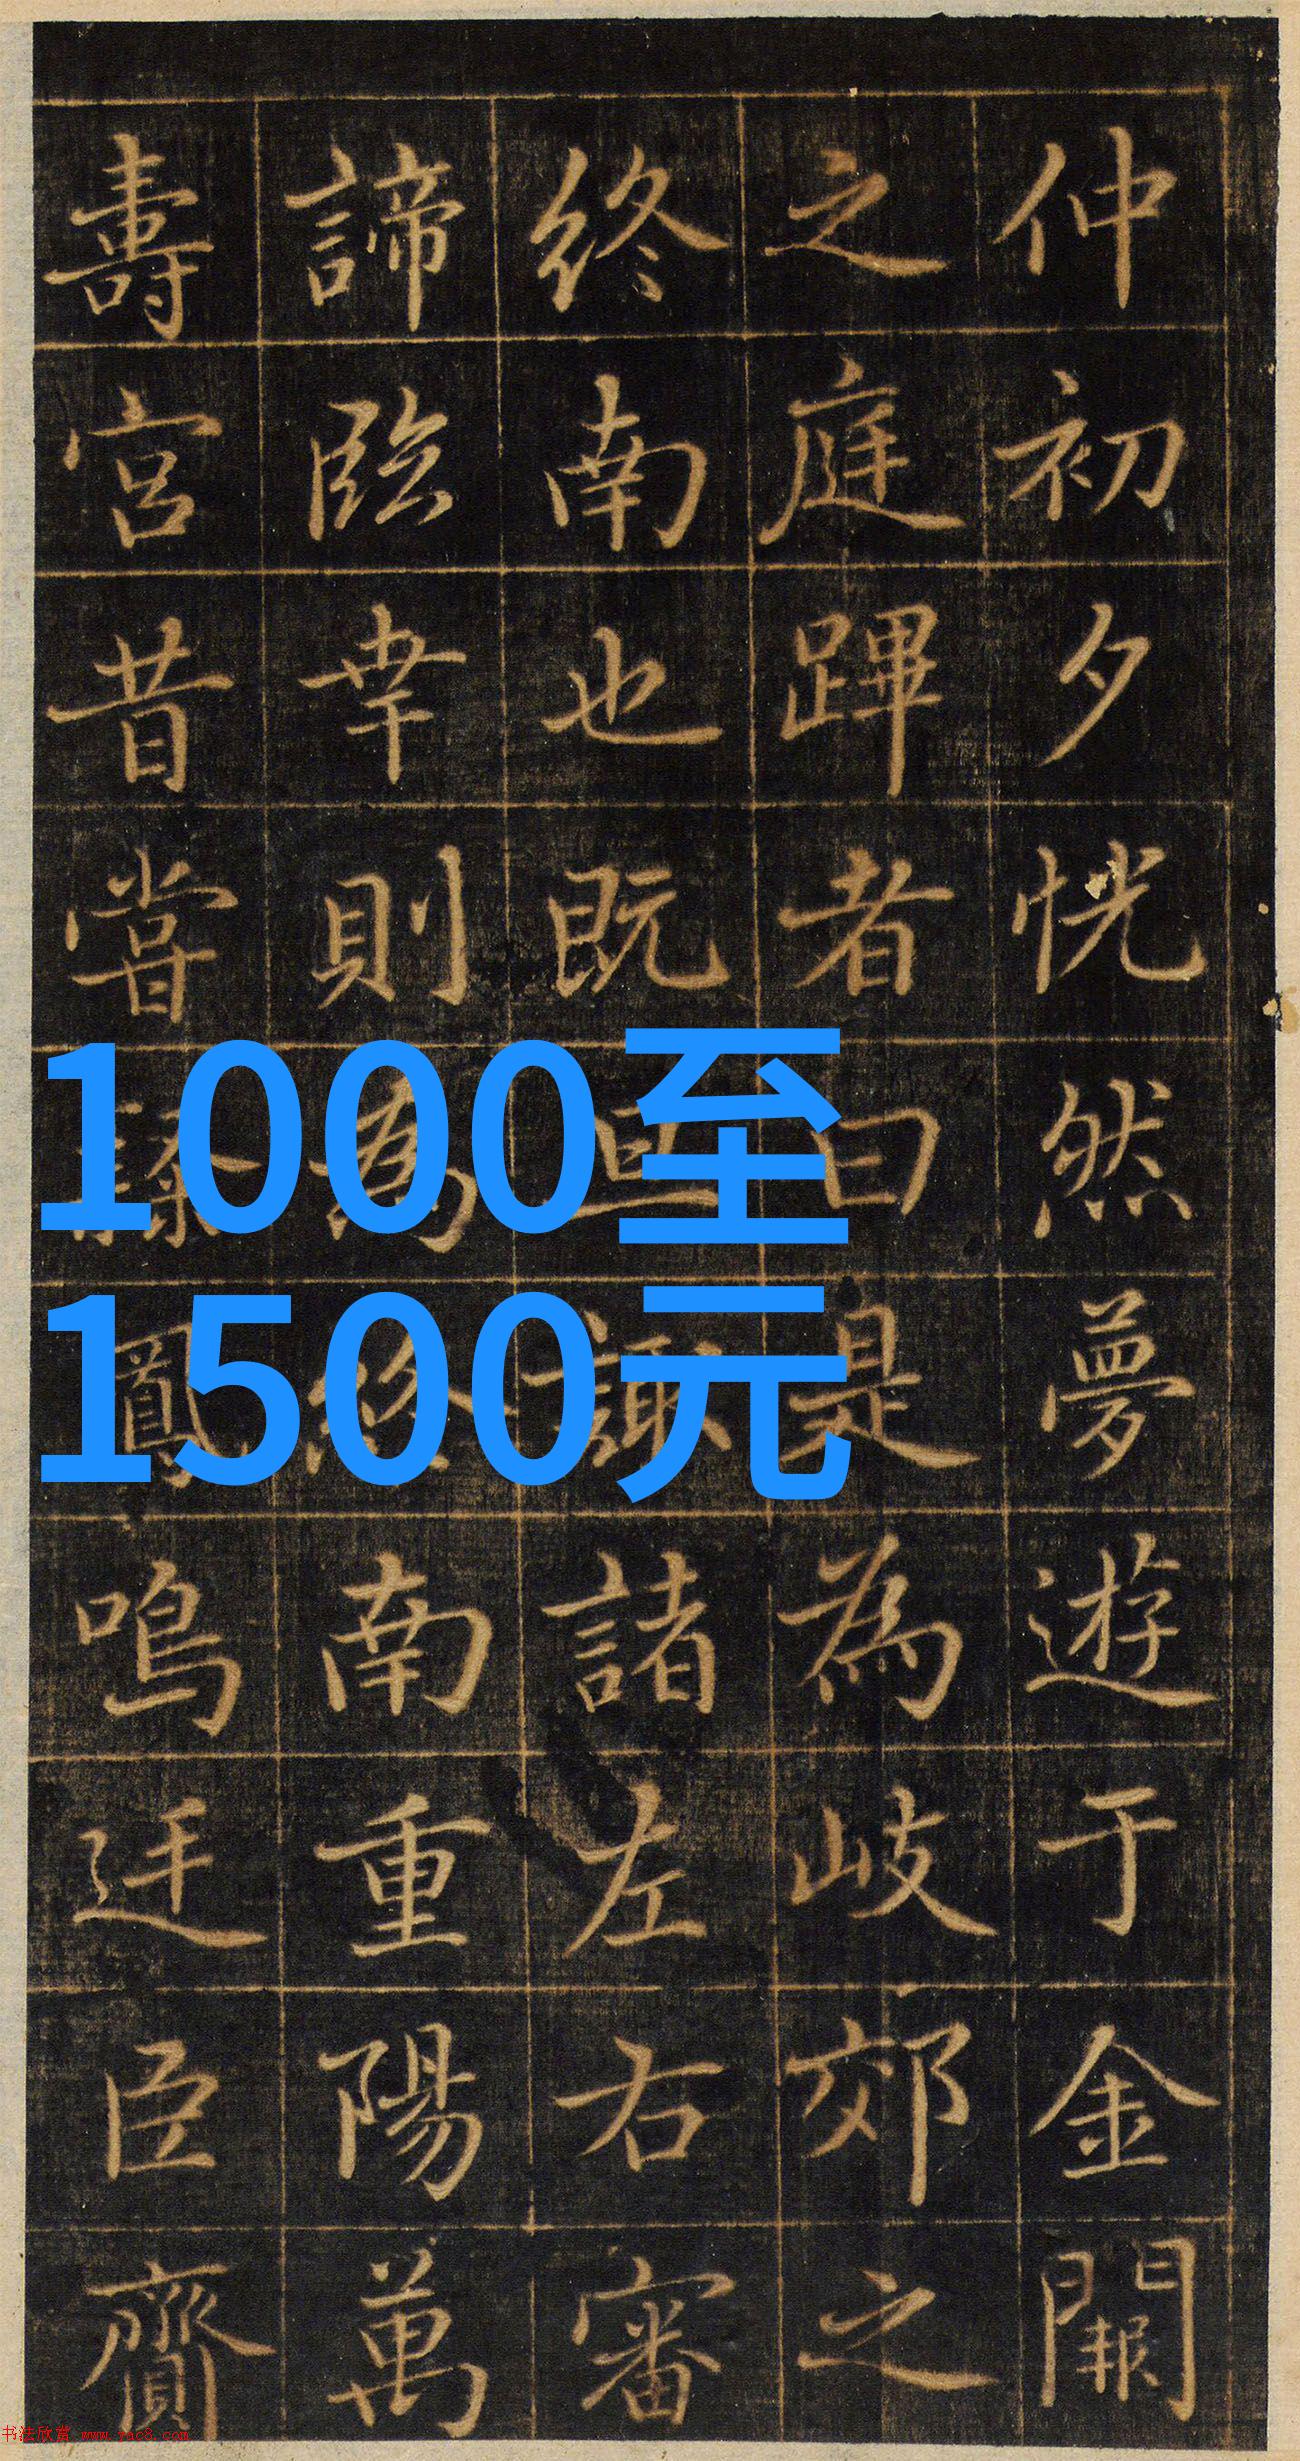 仲初夕恍然夢遊于金闕
之庭蹕者曰是為岐郊之
終南也既旦諏諸左右審
諦臨幸則為終南重陽萬
壽宮昔嘗鳳鳴廷臣齎
1000至
1500元
书法欣赏 www.yac8.com